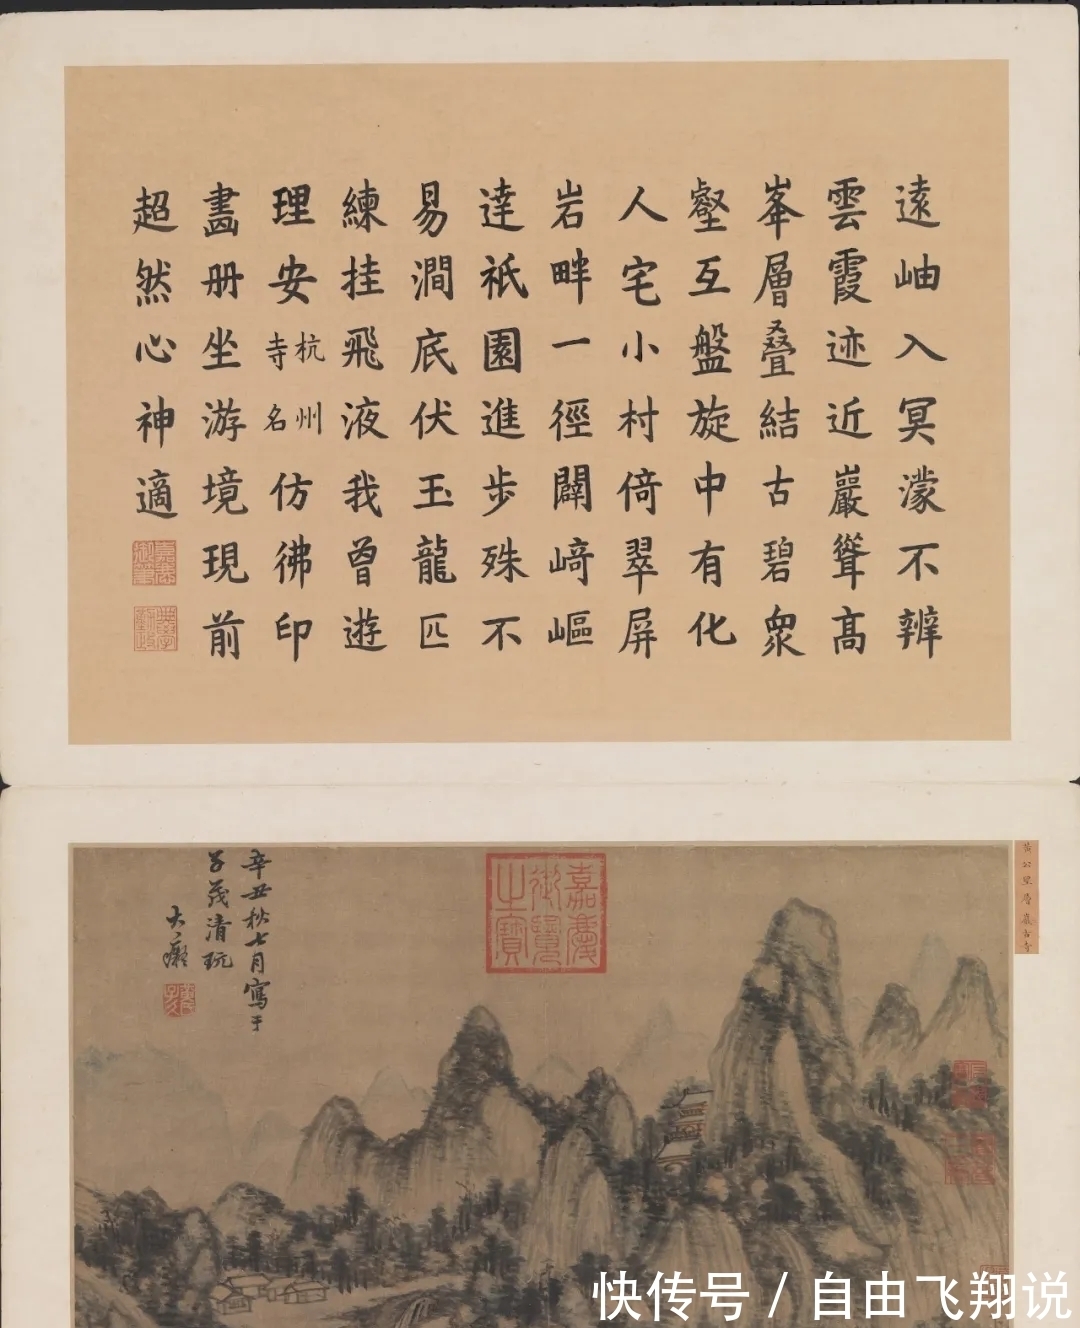 遠岫入冥濛不辨
雲霞迹近巖聳高
峯層叠結古碧衆
壑互盤旋中有化
人宅小村倚翠屏
岩畔一徑闢﨑嶇
達祇園進步殊不
易澗底伏玉龍匹
練挂飛液我曾遊
理安杭州寺名仿彿印
畫册坐游境現前
超然心神適
嘉慶御覽之寶
辛丑秋七月寫于
子茂清玩
大癡
黃公望層巖古寺
快传号 / 自由飞翔说